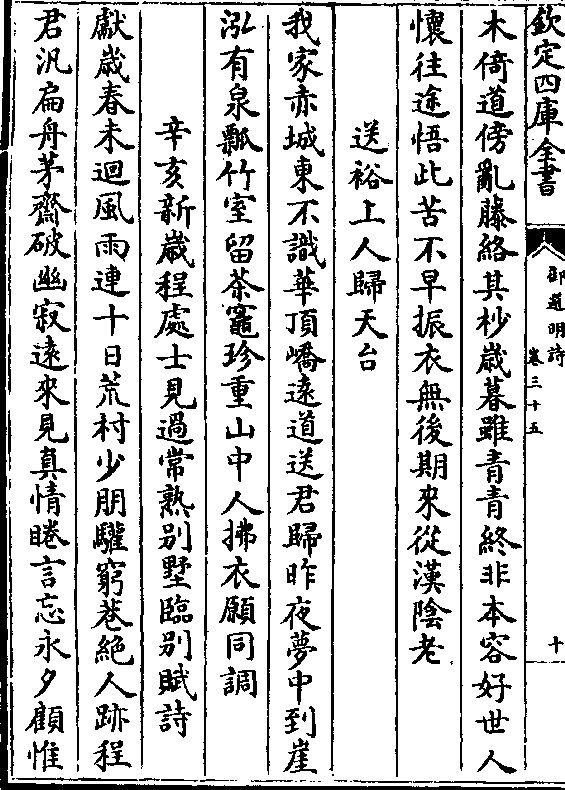 欽定四庫全書
御選明詩
卷三十五
十
木倚道傍亂藤絡其杪歳暮雖青青終非本容好世人
懷往途悟此苦不早振衣無後期來從漢隂老
送裕上人歸天台
我家赤城東不識華頂嶠逺道送君歸昨夜夢中到崖
泓有泉瓢竹室留茶竈珍重山中人拂衣願同調
辛亥新歳程處士見過常熟别墅臨别賦詩
獻歳春未迴風雨連十日荒村少朋驩窮巷絶人跡程
君汎扁舟茅齋破幽寂逺來見真情睠言忘永夕顧惟